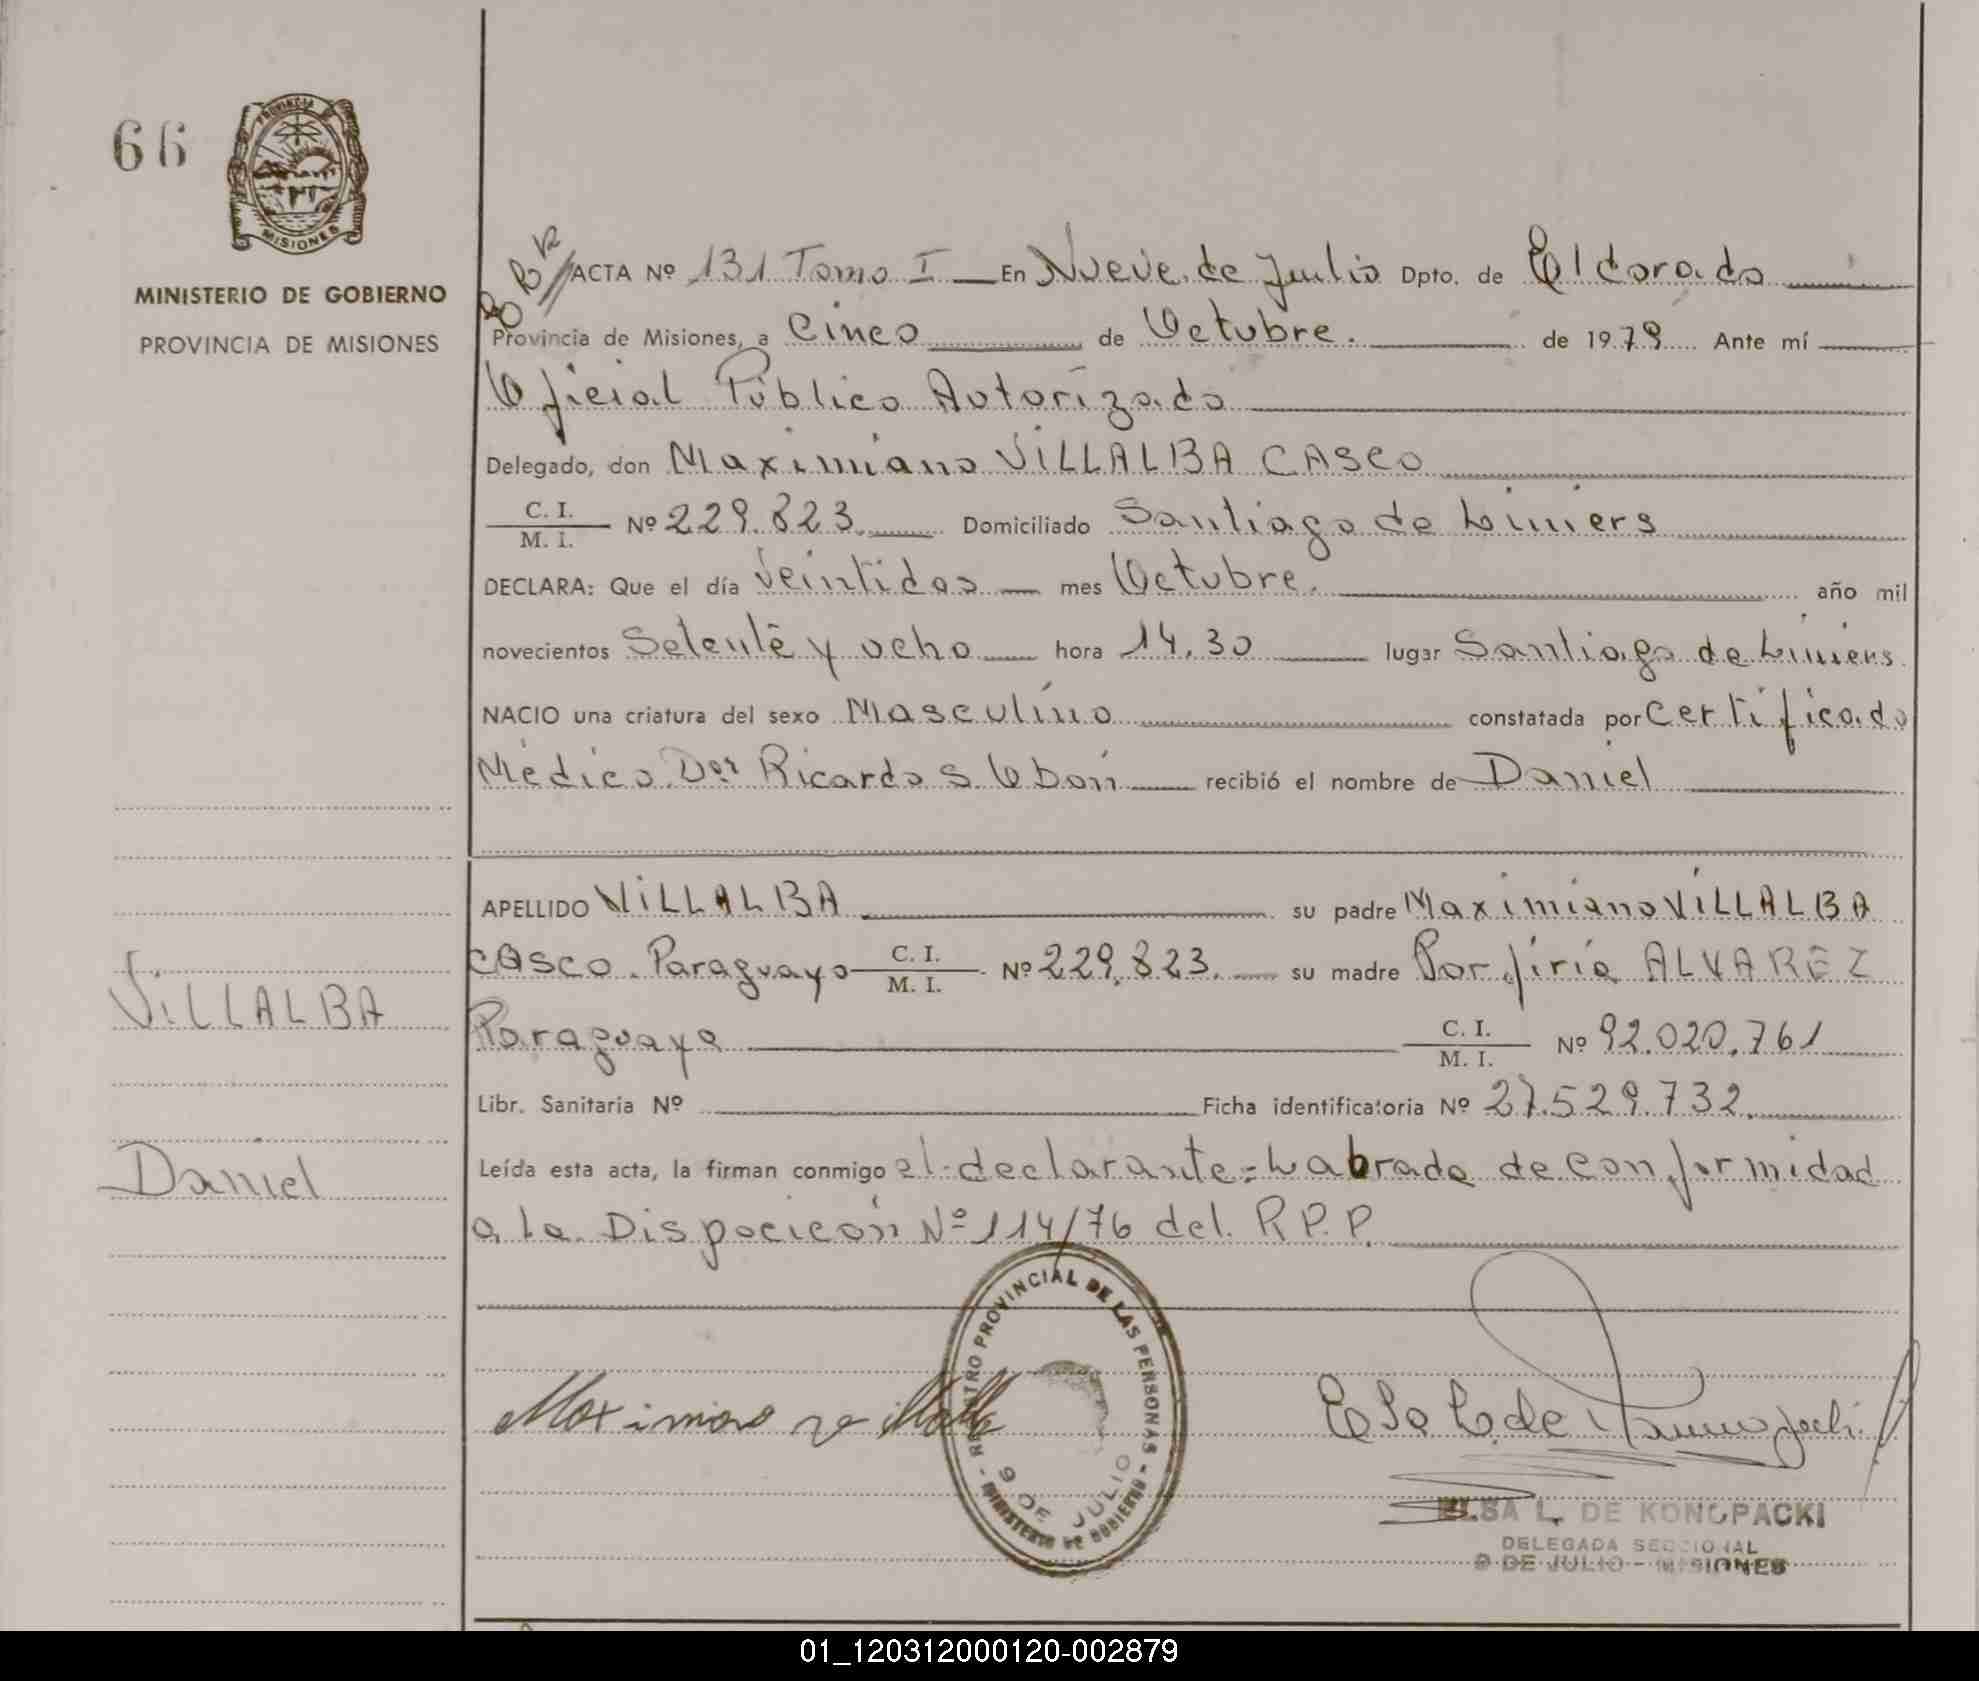 66
PROVINCIA
MISIONES
MINISTERIO DE GOBIERNO
PROVINCIA DE MISIONES
ACTA Nº 131 Tomo I En Nueve de Julio Dpto. de Eldorado
Provincia de Misiones, a Cinco de Octubre. de 1979 Ante mí
Oficial Público Autorizado
Delegado, don Maximiano VILLALBA CASCO
C. I.
M. I. Nº 229.823. Domiciliado Santiago de Liniers
DECLARA: Que el día veintidos mes Octubre. año mil
novecientos Setenta y ocho hora 14,30 lugar Santiago de Liniers.
NACIO una criatura del sexo Masculino constatada por Certificado
Médico Dor Ricardo S. Obon recibió el nombre de Daniel
APELLIDO VILLALBA su padre Maximiano VILLALBA
CASCO. Paraguayo C. I.
M. I. Nº 229.823. su madre Porfiria ALVAREZ
Paraguaya C. I.
M. I. Nº 92.020.761
Libr. Sanitaria Nº Ficha identificatoria Nº 27.529.732.
Leída esta acta, la firman conmigo el declarante = Labrada de conformidad
a la Disposición Nº 114/76 del R.P.P.
VILLALBA
Daniel
REGISTRO PROVINCIAL DE LAS PERSONAS
9 DE JULIO
MINISTERIO DE GOBIERNO
ELSA L. DE KONOPACKI
DELEGADA SECCIONAL
9 DE JULIO - MISIONES
01_120312000120-002879